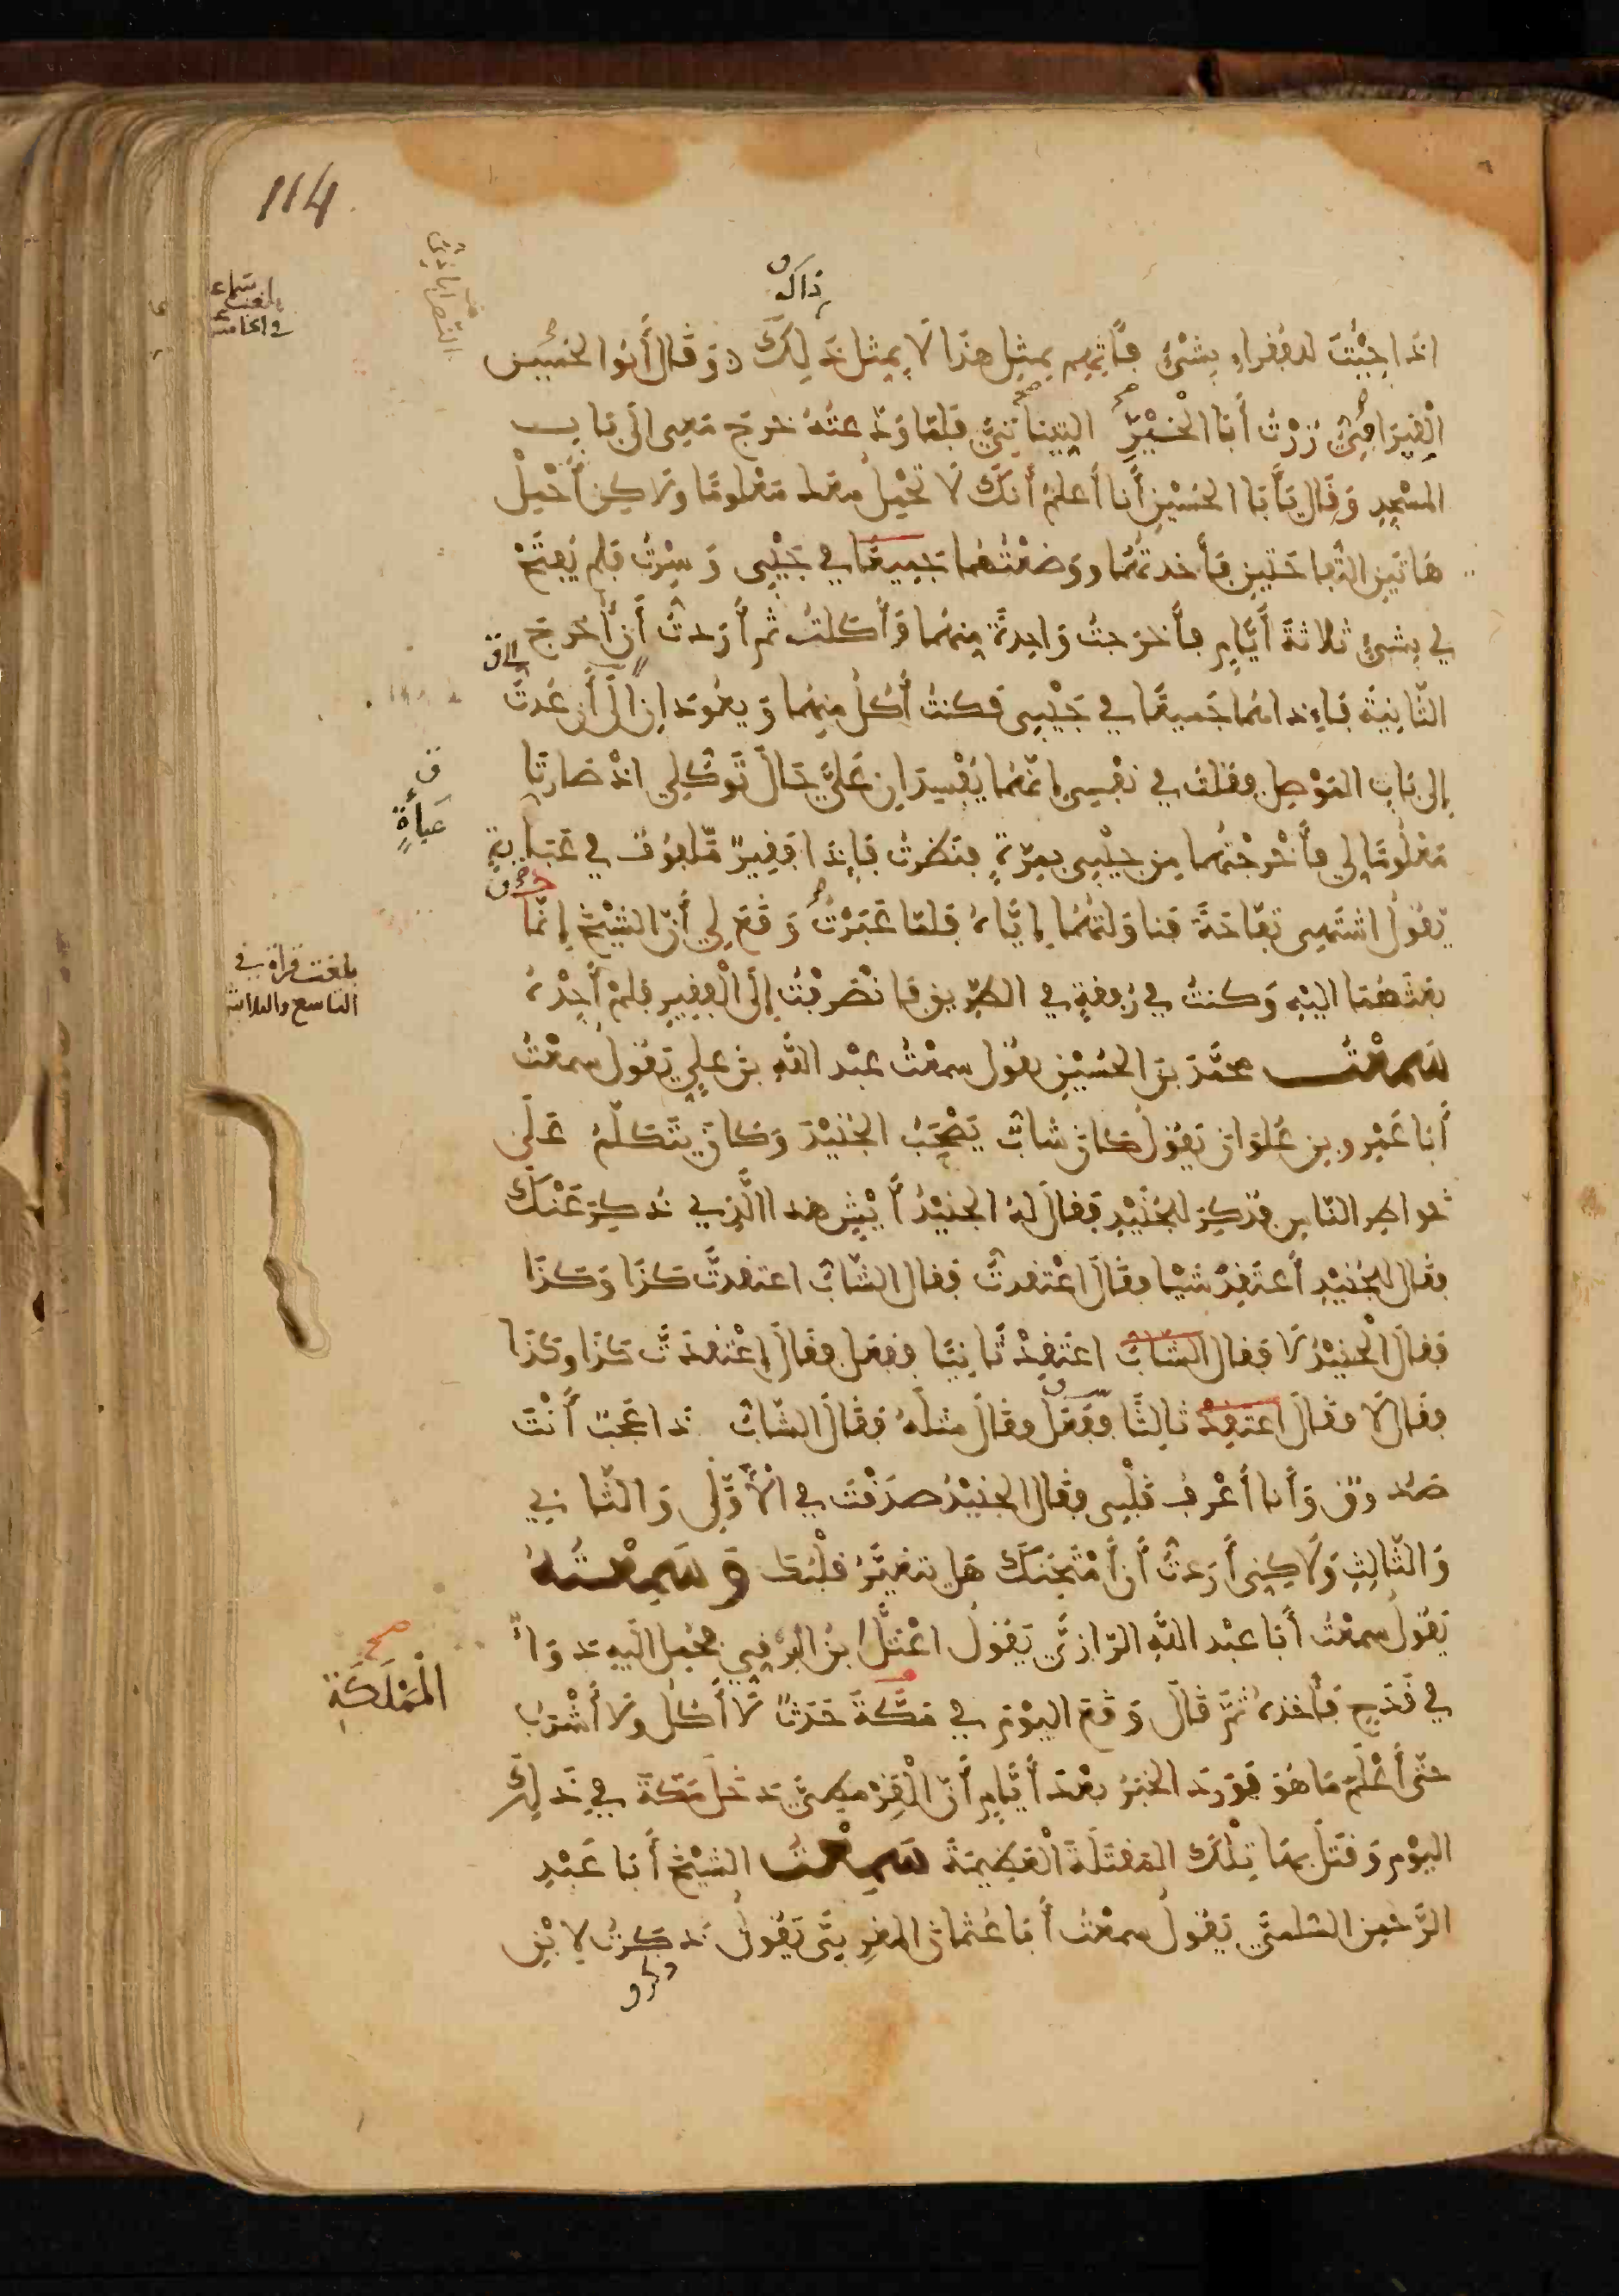 114
ذاك ن
اذا جِئْتَ للفقراءِ بشَىْءٍ فَأْتِهِم بمِثْلِ هذا لَا بِمِثْل ذَلِكَ وَقَال أَبُو الحُسَين
الْقِيرَافِىُّ زُرْتُ أَبَا الْخَيْرِ التِينَاتِىَّ فَلَمَّا وَدَّعتُهُ خرَجَ مَعِى الَى بَاب
المَسْجِدِ وَقَال يَأَبَا الحُسَيْنِ أَنا أَعلمُ أَنكَ لَا تَحْمِلُ معَك مَعْلومًا ولَاكِن أَحْمِلْ
هَاتَيْنِ التُّفاحَتَيْنِ فَأَخدتُهُمَا ووَضعْتُهُما جَمِيعًا في جَيْبِى وَسِرْتُ فلم يُفتَحْ
لي بِشَىْءٍ ثَلاثةَ أَيَّامٍ فأَخرَجتُ وَاحِدةً مِنهُما فَأَكلتُ ثم أَرَدتُ أَن أُخرِجَ
الثَّانِيَةَ فَإذا هُمَا جَميعًا في جَيْبِى فَكنتُ أَكُلُ مِنهُما وَيعُودَانِ الَى أَن عُدتُ
إلى ن
إلى بَابِ المَوْصِل فقلتُ في نفْسِي إنَّهُمَا يُفْسِدَانِ عَلَىَّ حَالَ تَوَكُّلِي اذْ صَارتَا
مَعْلُومًا لِي فأَخْرَجْتُهُما مِن جَيْبِى بِمَرَّةٍ فنَظرتُ فَإِذا فَقِيرٌ مَّلفُوفٌ في عَبَايَةٍ
ن عَباءَةٍ
يَقُولُ اشتَهِى تفّاحَةً فَناوَلتُهُمَا إيَّاهُ فَلمّا عَبَرْتُ وَقَعَ لِي أَنّ الشَيْخَ إنّمَا
بَعَثَهُمَا الَيْهِ وَكنتُ في رُفقةٍ في الطرِيق فانْصَرفْتُ إلَى الْفقِيرِ فلَمْ أَجِدْهُ
سَمِعْتُ محَمَّدَ بنَ الحُسَيْنِ يقُول سمعْتُ عبْد اللَّهِ بنَ علِىٍّ يَقُولُ سمعْتُ
أَبَا عَمْرو بن عُلوَانَ يَقُولُ كانَ شابٌّ يَصْحَبُ الجُنَيْدَ وَكانَ يتَكلّمُ عَلَى
خواطِر النّاسِ فذُكِرَ لِلجُنَيْدِ فَقالَ لهُ الجُنَيْدُ أَيْشٍ هذا الَّذِي ذُكِرَ عَنْكَ
فقَال لِلجُنَيْدِ أعتَقِدْ شَيْئا فقَالَ اعْتَقدتُّ فقال الشّابُّ اعتقدتَّ كذَا وَكذَا
فقالَ الْجُنَيْدُ لا فَقال الشابُّ اعتَقِدْ ثَانِيًا ففعَل فقَالَ إعْتَقدتَّ كذَا وكَذَا
فقَال لَا فقَال اعتَقِدْ ثالِثًا ففَعَلَ فقَالَ مثلَهُ فقَالَ الشّابُّ ذَا عَجَبٌ أَنْتَ
صَدُوقٌ وَأَنا أَعْرِفُ قَلْبِى فقَال الجُنَيْدُ صدَقْتَ في الْأَوَّلِ وَالثّانِي
وَالثَّالِثِ وَلَاكِنِى أَرَدتُّ أَن أَمْتَحِنَكَ هَل يتغيَّرُ قلْبُكَ وَسَمِعْتُهُ
يَقُولُ سمعْتُ أَبَا عبْد اللَّهِ الرّازِىَّ يَقُولُ اعْتَلَّ ابنُ الرَّقِّي فحُمِل الَيهِ دَوَاءٌ
في قَدَحٍ فَأَخذهُ ثُمَّ قَالَ وَقَعَ اليَوْمَ في مَكَّةَ حَدَثٌ لَا أَكُل ولَا أَشْرَبُ
صح
الْمَمْلَكَةِ
حتَّى أَعْلَمَ مَا هُوَ فوَرَدَ الخبَرُ بعْدَ أَيَّامٍ أَنّ الْقِرْمِطِىَّ دَخَلَ مَكَّةَ في ذَلِكَ
اليَوْمِ وَقَتَلَ بهَا تِلْكَ المَقتَلَةَ الْعَظِيمَةَ سَمِعْتُ الشيْخَ أَبَا عَبْدِ
الرَّحْمنِ السُّلَمىَّ يَقُولُ سمعْتُ أَبَا عُثمانَ المغرِبِىَّ يَقُولُ ذَكَرتُ لِابْنِ
بلغت سماعا
في الخامس
بلغت قراة في
التاسع والثلاثين